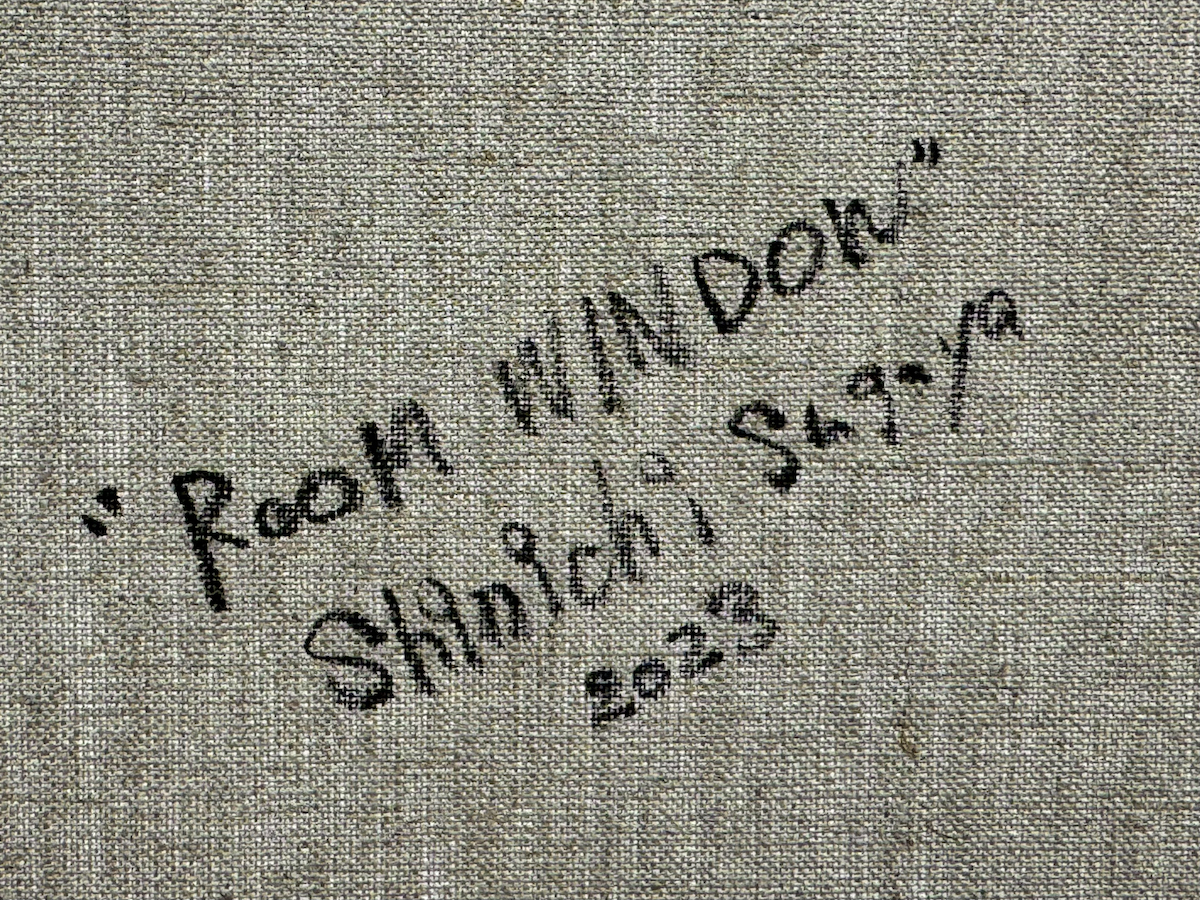 "ROOM WINDOW"
Shinichi Sugaya
2023